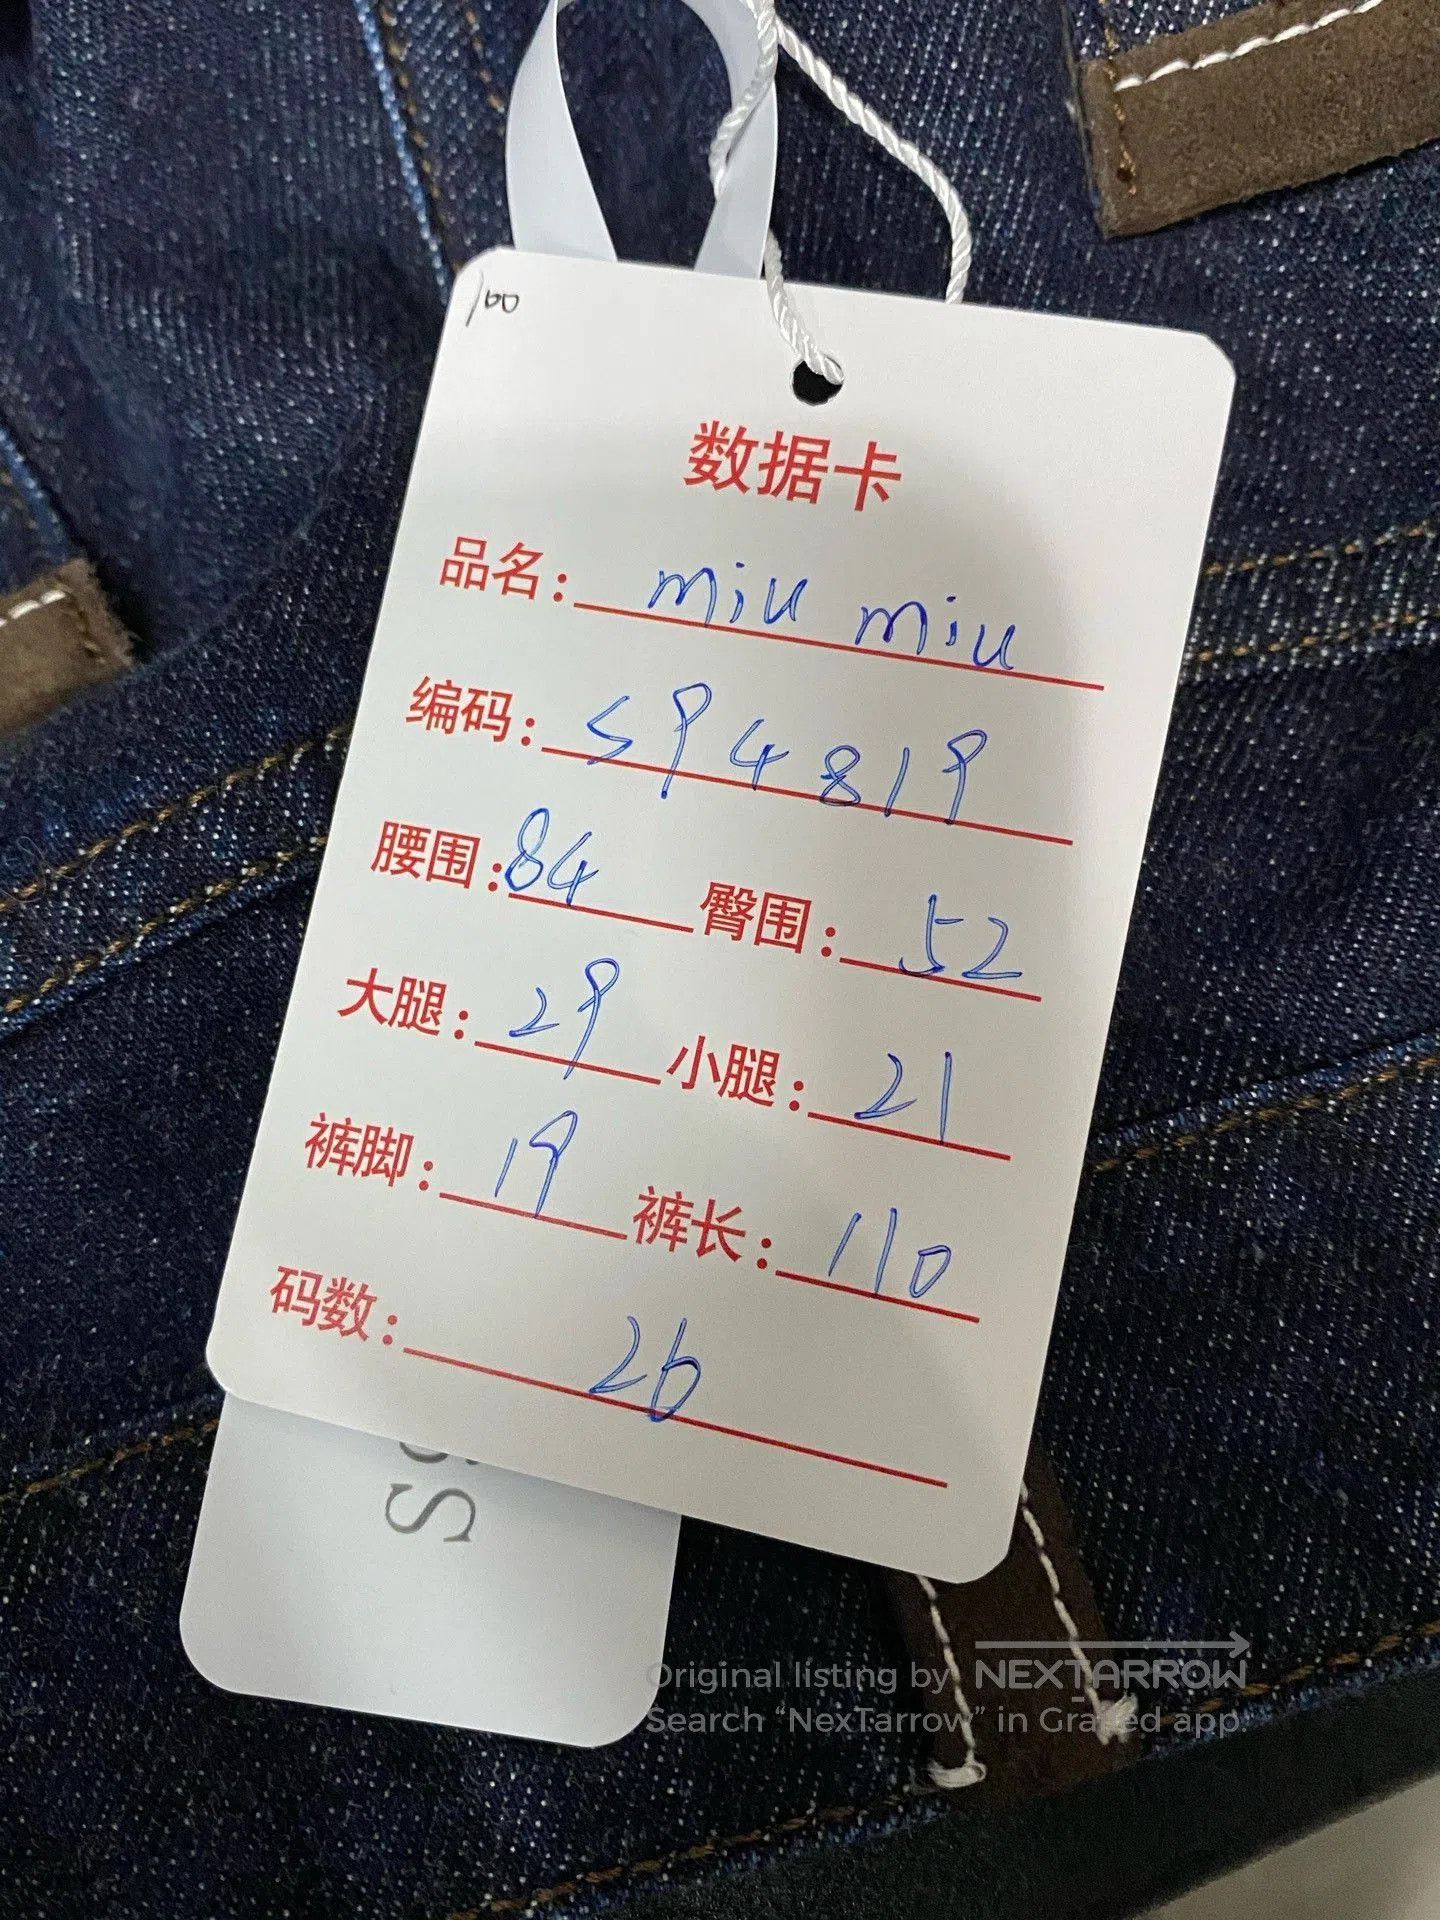 100
数据卡
品名: miu miu
编码: 594819
腰围: 84 臀围: 52
大腿: 29 小腿: 21
裤脚: 19 裤长: 110
码数: 26
Original listing by NEXTARROW
Search “NexTarrow” in Grailed app